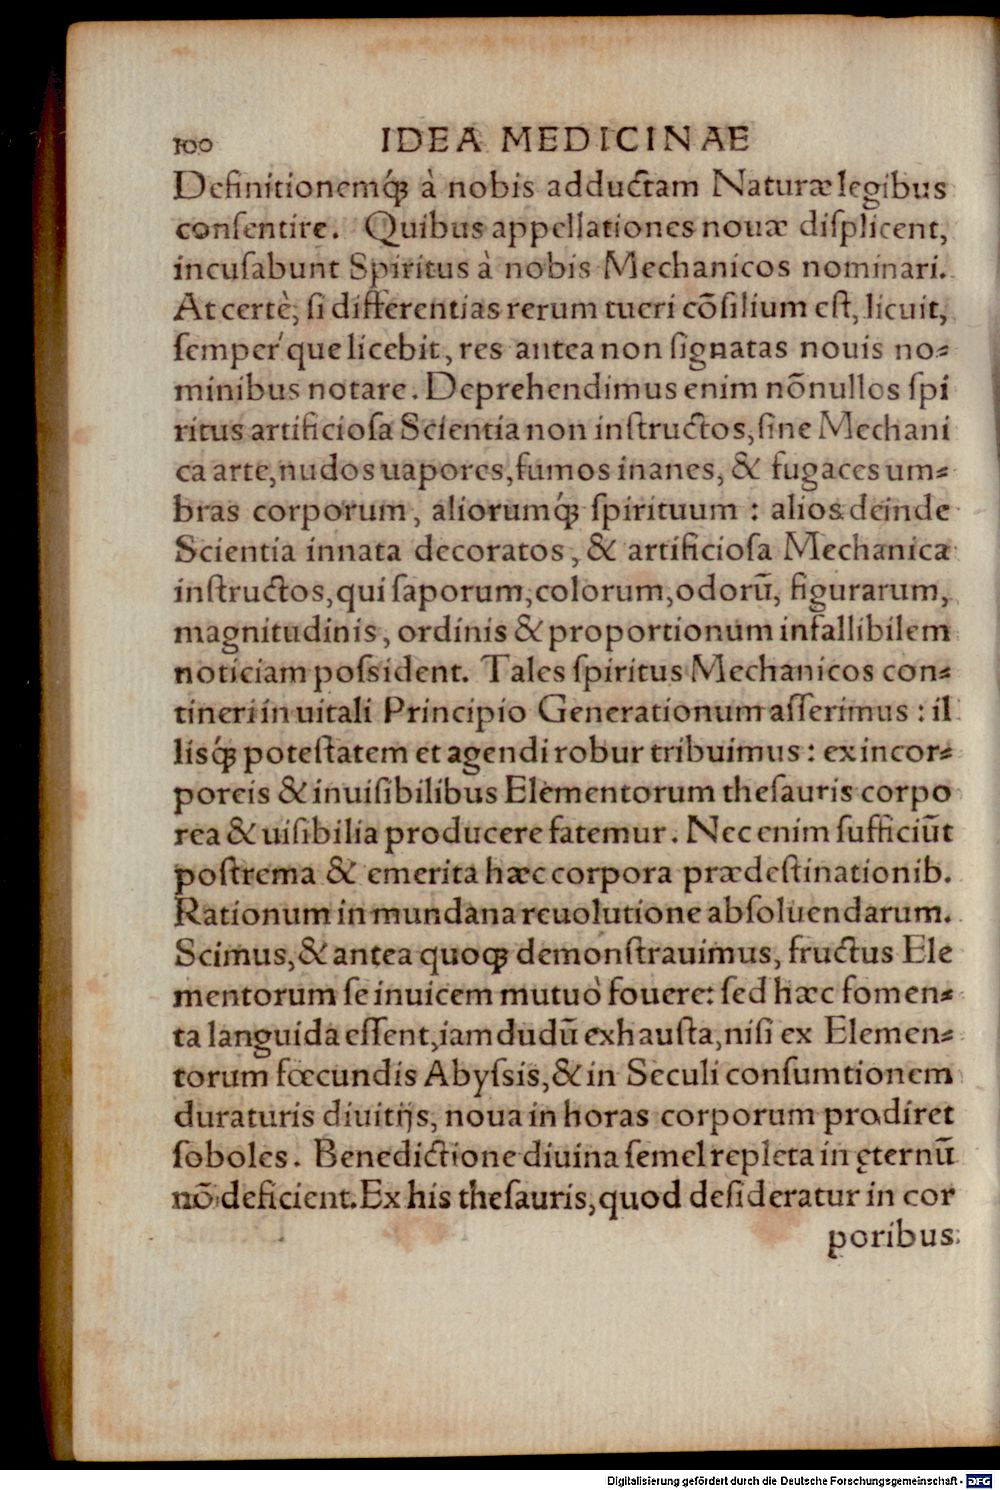 100 IDEA MEDICINAE
Definitionemq́ꝫ à nobis adductam Naturæ legibus
conſentire. Quibus appellationes nouæ diſplicent,
incuſabunt Spiritus à nobis Mechanicos nominari.
At certè, ſi differentias rerum tueri cõſilium eſt, licuit,
ſemper'que licebit, res antea non ſignatas nouis no⸗
minibus notare. Deprehendimus enim nõnullos ſpi
ritus artificioſa Scientia non inſtructos, ſine Mechani
ca arte, nudos uapores, fumos inanes, & fugaces um⸗
bras corporum, aliorumq́ꝫ ſpirituum : alios deinde
Scientia innata decoratos, & artificioſa Mechanica
inſtructos, qui ſaporum, colorum, odorū, figurarum,
magnitudinis, ordinis & proportionum infallibilem
noticiam poſsident. Tales ſpiritus Mechanicos con⸗
tineri in uitali Principio Generationum aſſerimus : il
lisq́ꝫ poteſtatem et agendi robur tribuimus : ex incor⸗
poreis & inuiſibilibus Elementorum theſauris corpo
rea & uiſibilia producere fatemur. Nec enim ſufficiūt
poſtrema & emerita hæc corpora prædeſtinationib.
Rationum in mundana reuolutione abſoluendarum.
Scimus, & antea quoqꝫ demonſtrauimus, fructus Ele
mentorum ſe inuicem mutuò fouere: ſed hæc fomen⸗
ta languida eſſent, iam dudū exhauſta, niſi ex Elemen⸗
torum fœcundis Abyſsis, & in Seculi conſumtionem
duraturis diuitijs, noua in horas corporum prodiret
ſoboles. Benedictione diuina ſemel repleta in ęternū
nõ deficient. Ex his theſauris, quod deſideratur in cor
poribus
Digitalisierung gefördert durch die Deutsche Forschungsgemeinschaft - DFG